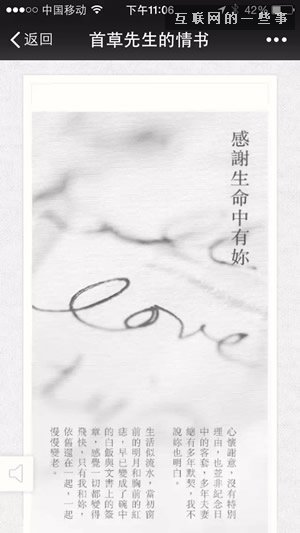 中国移动 下午11:06 42%
互联网的一些事
返回
首草先生的情书
感謝生命中有妳
love
心懷謝意,沒有特別
理由,也並非紀念日
中的客套,多年夫妻
總有多年默契,我不
說妳也明白。
生活似流水,當初窗
前的明月和胸前的紅
痣,早已變成了碗中
的白飯與文書上的簽
章,感覺一切都變得
飛快,只有我和妳,
依舊還在一起,一起
慢慢變老。